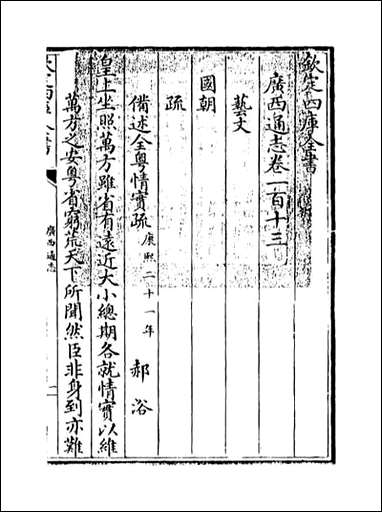 欽定四庫全書
廣西通志卷一百十三
藝文
國朝
疏
備述全粤情實疏 康熙二十一年 郝浴
皇上坐照萬方雖省有遠近大小總期各就情實以維
萬方之安粤省窮荒天下所聞然臣非身到亦難
廣西通志